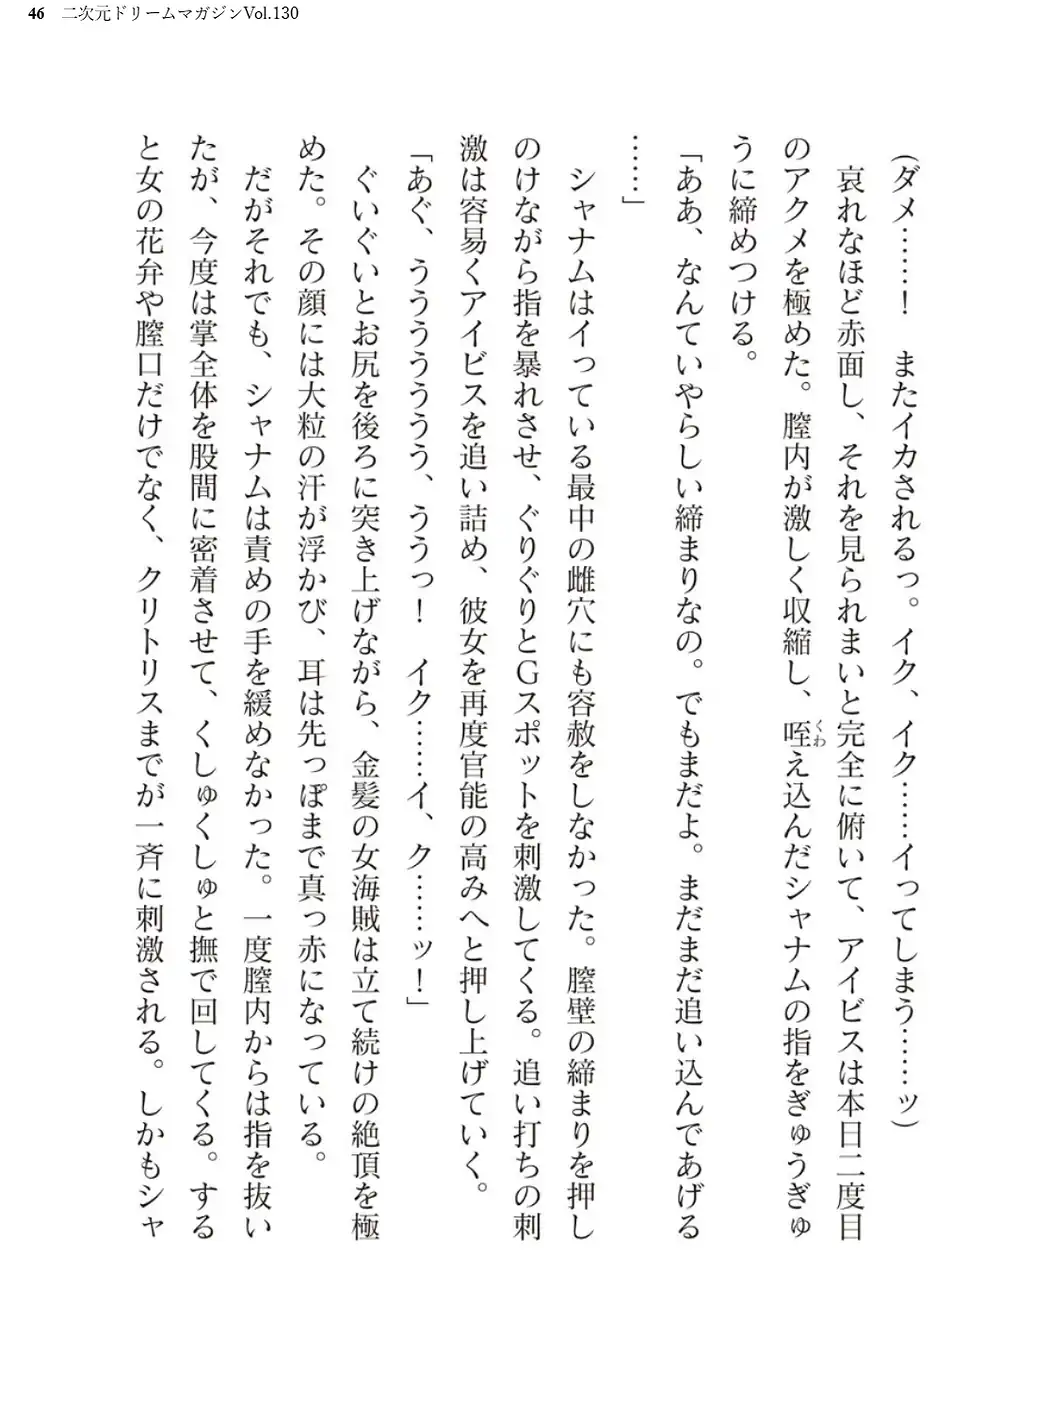 46 二次元ドリームマガジンVol.130
(ダメ……！　またイカされるっ。イク、イク……イってしまう……ッ)
　哀れなほど赤面し、それを見られまいと完全に俯いて、アイビスは本日二度目
のアクメを極めた。膣内が激しく収縮し、咥え込んだシャナムの指をぎゅうぎゅ
くわ
うに締めつける。
「ああ、なんていやらしい締まりなの。でもまだよ。まだまだ追い込んであげる
……」
　シャナムはイっている最中の雌穴にも容赦をしなかった。膣壁の締まりを押し
のけながら指を暴れさせ、ぐりぐりとGスポットを刺激してくる。追い打ちの刺
激は容易くアイビスを追い詰め、彼女を再度官能の高みへと押し上げていく。
「あぐ、うううううう、ううっ！　イク……イ、ク……ッ！」
　ぐいぐいとお尻を後ろに突き上げながら、金髪の女海賊は立て続けの絶頂を極
めた。その顔には大粒の汗が浮かび、耳は先っぽまで真っ赤になっている。
　だがそれでも、シャナムは責めの手を緩めなかった。一度膣内からは指を抜い
たが、今度は掌全体を股間に密着させて、くしゅくしゅと撫で回してくる。する
と女の花弁や膣口だけでなく、クリトリスまでが一斉に刺激される。しかもシャ